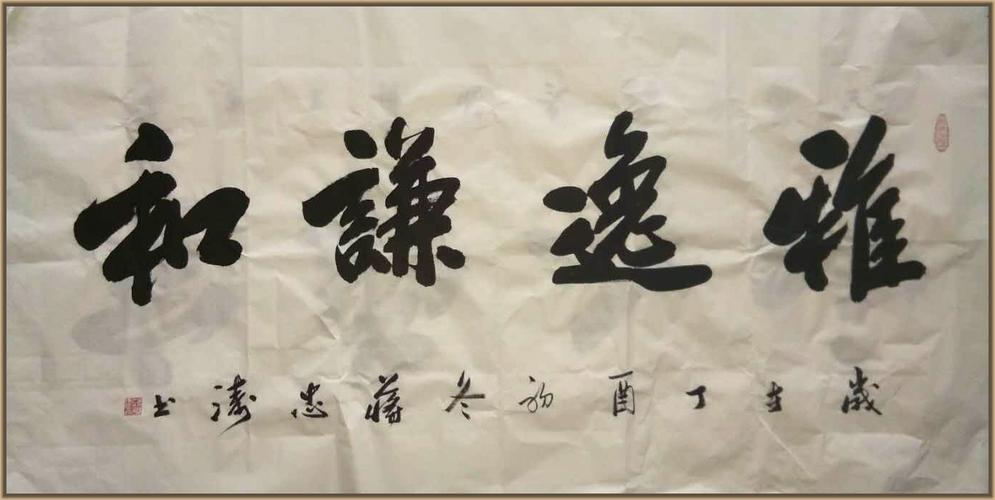 雅逸謙和
歲在丁酉初冬蔣忠濤書